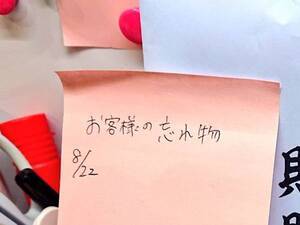 お客様の忘れ物
8/22